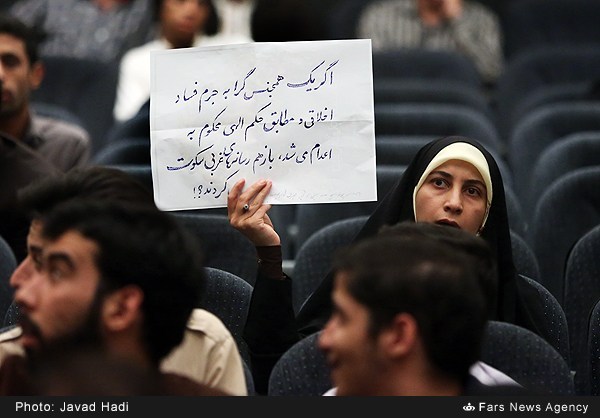 اگر یک همجنس گرا به جرم فساد
اخلاقی و مطابق حکم الهی محکوم به
اعدام می شد، بازهم رسانه های غربی سکوت
می کردند؟!
Photo: Javad Hadi
Fars News Agency